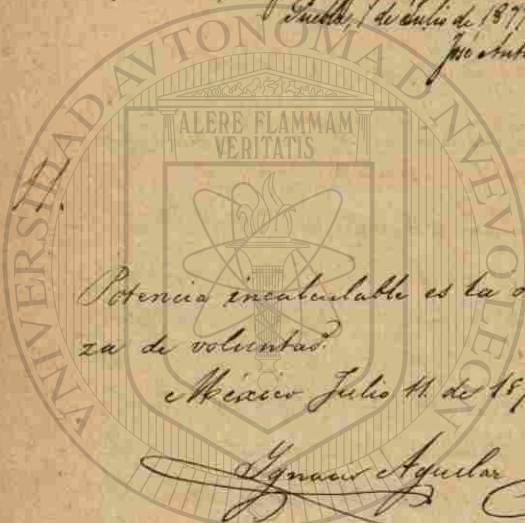 Puebla, 7 de Julio de 187
José Anto
UNIVERSIDAD AUTONOMA DE NUEVO LEON
ALERE FLAMMAM
VERITATIS
Potencia incalculable es la
za de voluntad.
México Julio 11. de 18
Ygnacio Aguilar